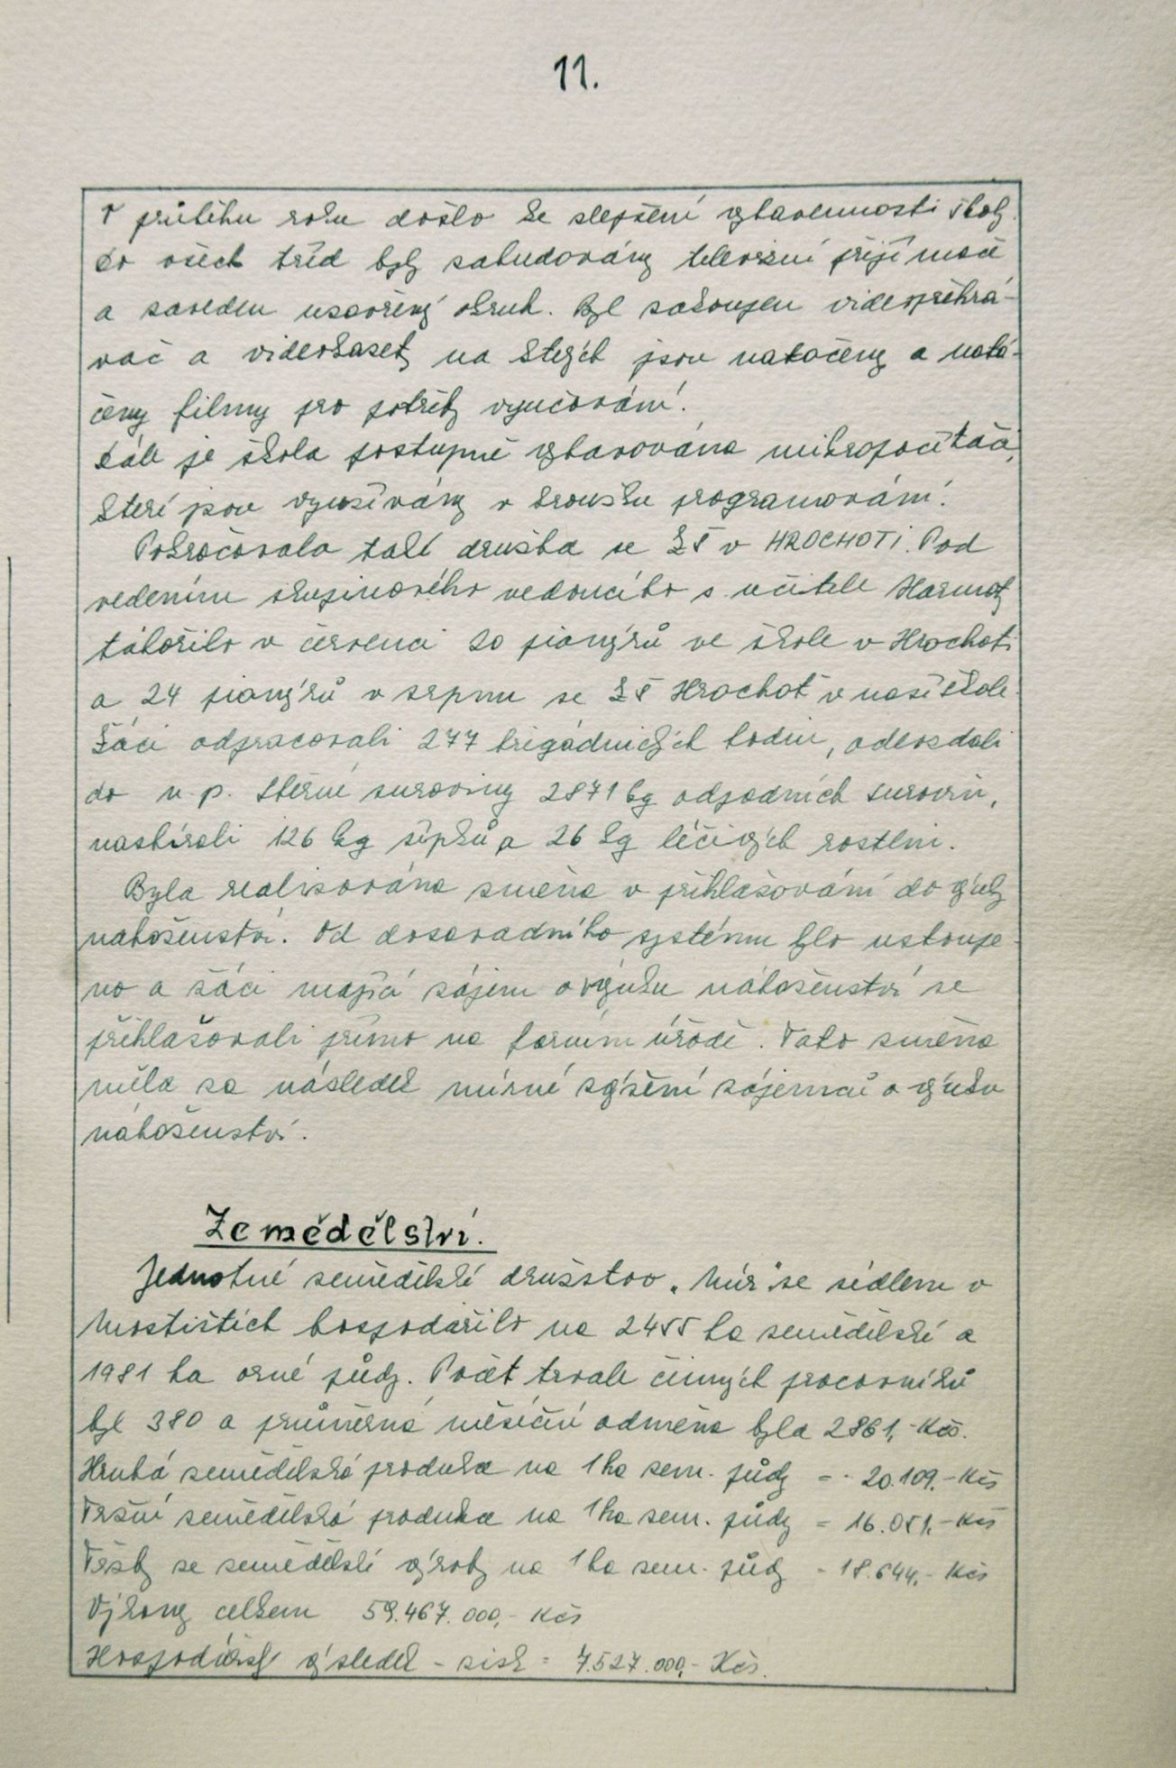 11.
V průběhu roku došlo ke zlepšení vybavenosti školy.
Do všech tříd byly zabudovány televizní přijímače
a zaveden uzavřený okruh. Byl zakoupen videopřehrá-
vač a videokasety na kterých jsou natočeny a natá-
čeny filmy pro potřeby vyučování.
Dále je škola postupně vybavována mikropočítači,
kteří jsou využívány v kroužku programování.
Pokračovala také družba se ZŠ v HROCHOTI. Pod
vedením skupinového vedoucího s. učitele
tábořilo v červenci 20 pionýrů ve škole v Hrochoti
a 24 pionýrů v srpnu ze ZŠ Hrochoť v naší škole.
Žáci odpracovali 277 brigádnických hodin, odevzdali
do n. p. Sběrné suroviny 2871 kg odpadních surovin,
nasbírali 126 kg šípků a 26 kg léčivých rostlin.
Byla realizována změna v přihlašování do výuky
náboženství. Od dosavadního systému bylo ustoupe-
no a žáci mající zájem o výuku náboženství se
přihlašovali přímo na farním úřadě. Tato změna
měla za následek mírné zvýšení zájemců o výuku
náboženství.
Zemědělství.
Jednotné zemědělské družstvo „Mír" se sídlem v
Mostištích hospodařilo na 2455 ha zemědělské a
1981 ha orné půdy. Počet trvale činných pracovníků
byl 380 a průměrná měsíční odměna byla 2861,- Kčs.
Hrubá zemědělská produkce na 1 ha zem. půdy = 20.109,- Kčs
Tržní zemědělská produkce na 1 ha zem. půdy = 16.051,- Kčs
Tržby ze zemědělské výroby na 1 ha zem. půdy - 18.644,- Kčs
Výkony celkem 59.467.000,- Kčs
Hospodářský výsledek - zisk = 7.527.000,- Kčs.